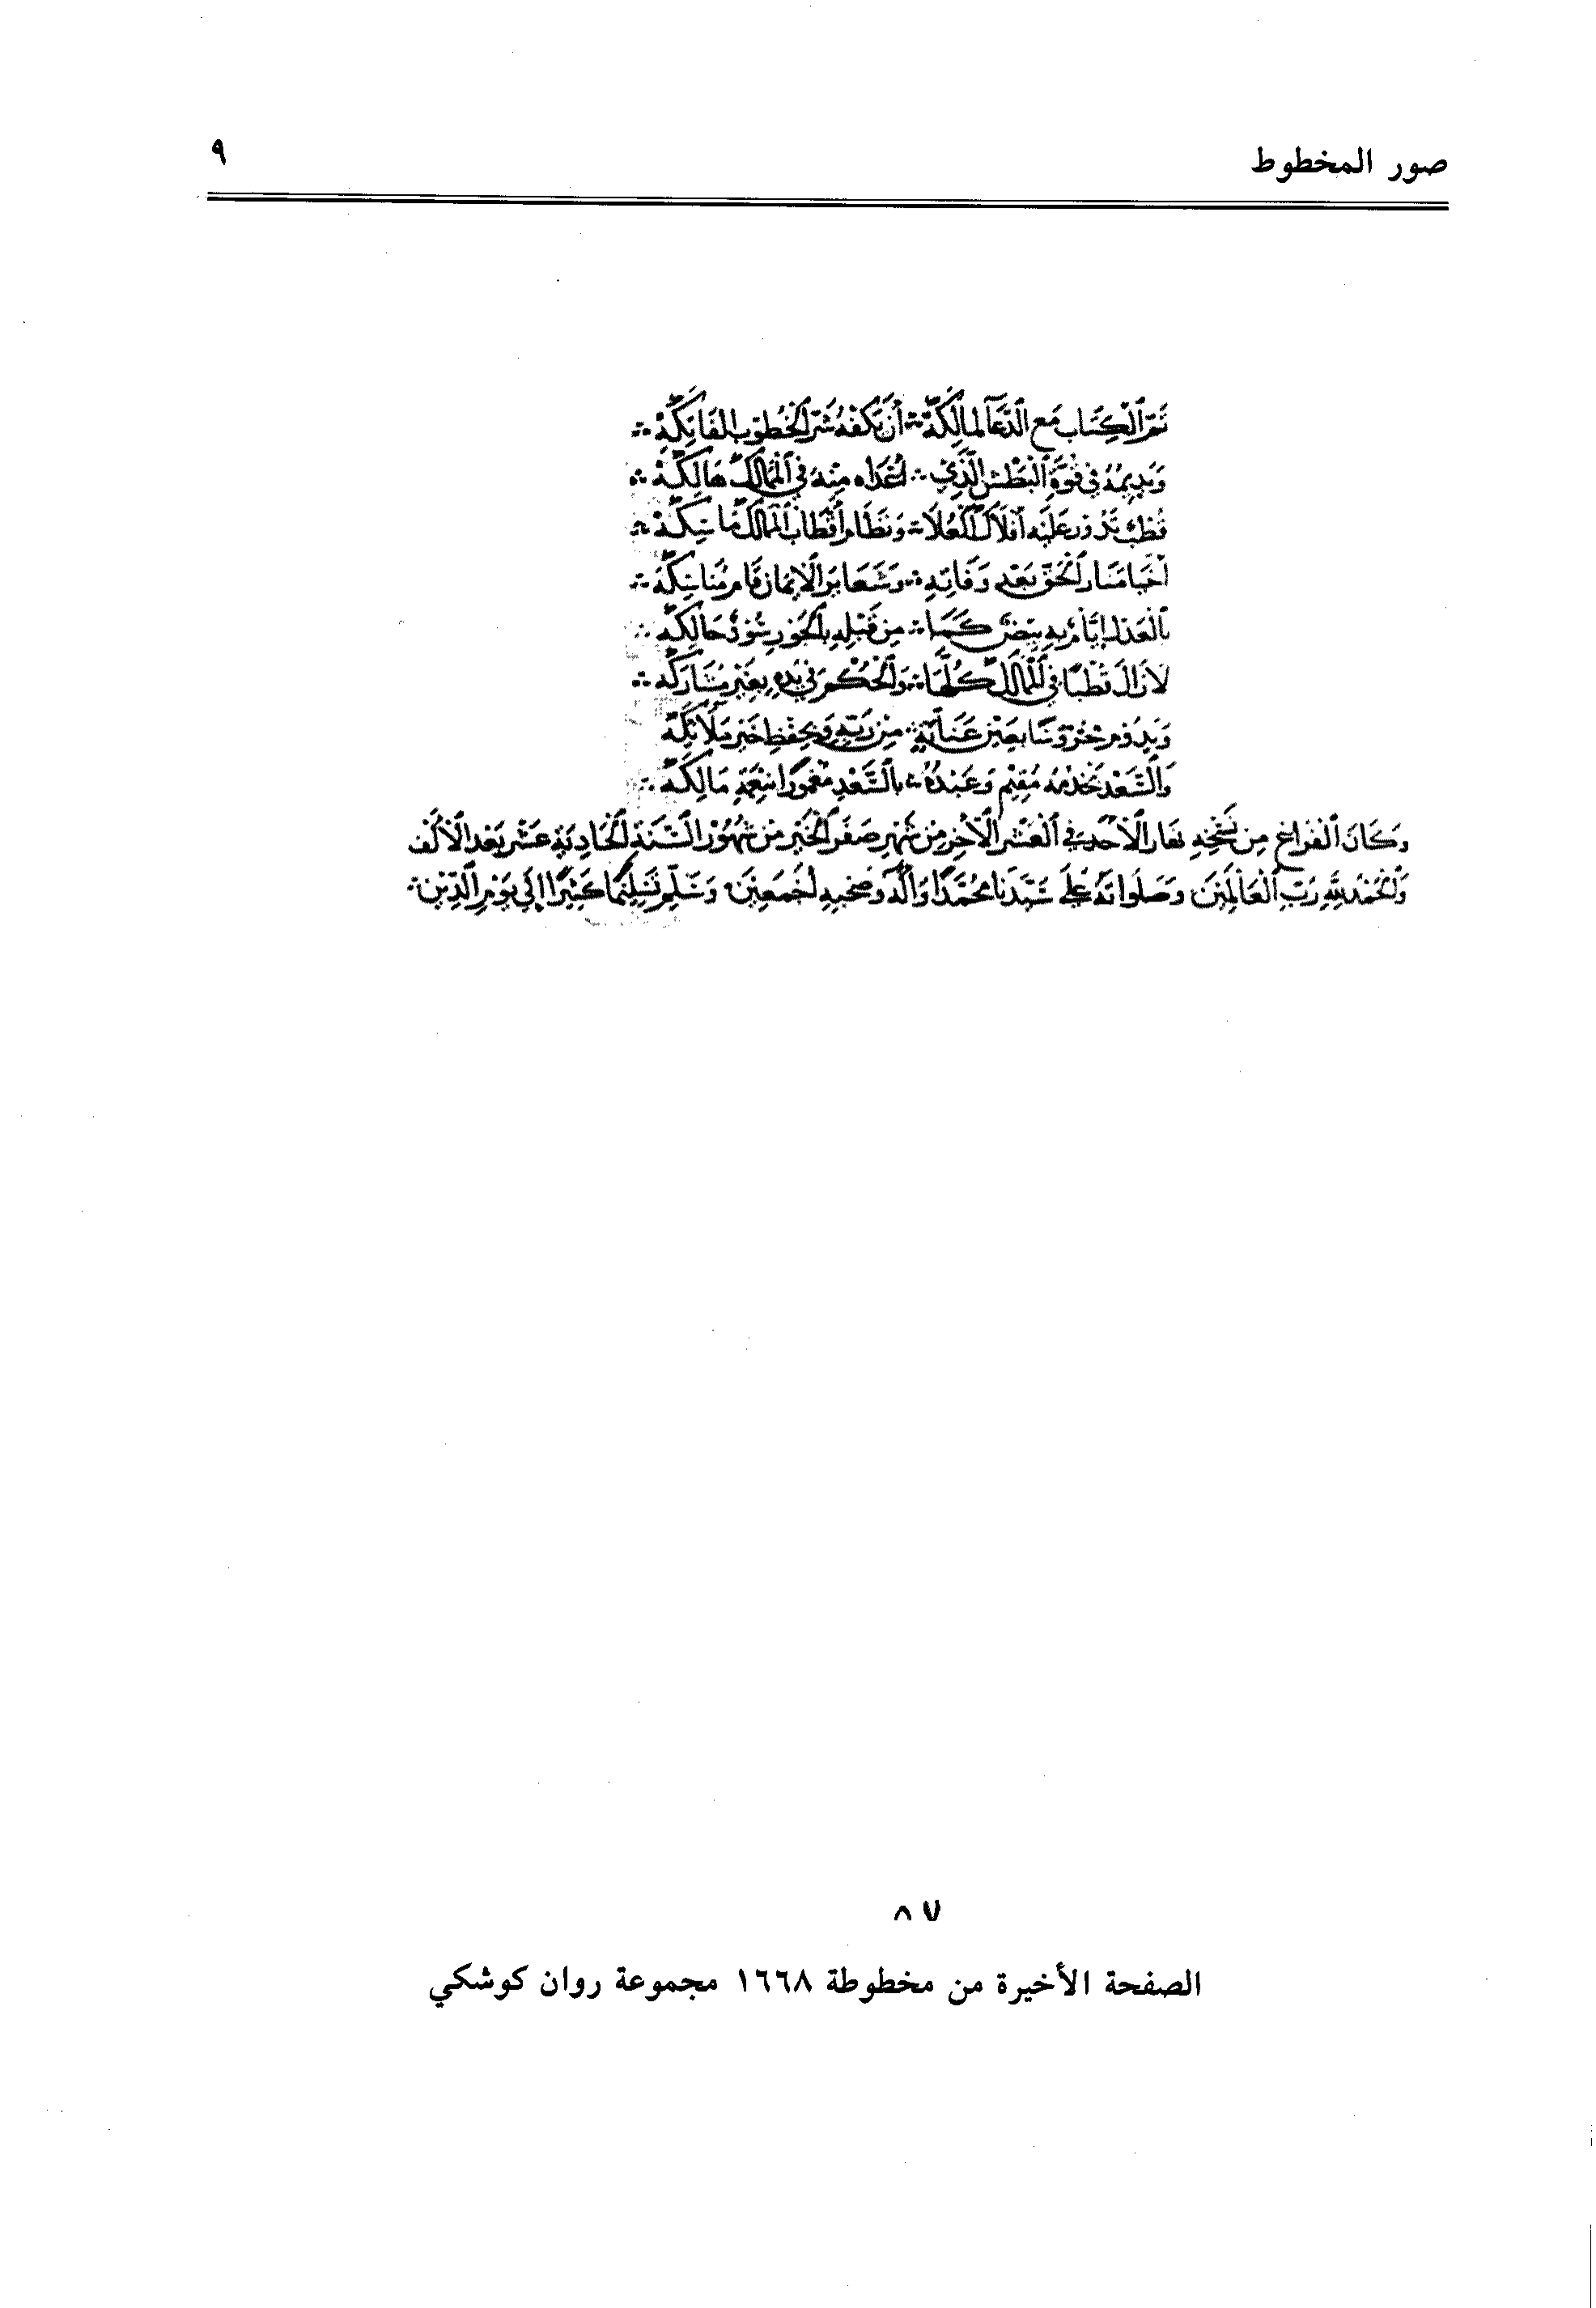 صور المخطوط
٩
تَمَّ الْكِتَاب مَع الدُّعَا لمالِكَهْ ∴ أَن تَكفهُ شَرّ الْخُطوب الفَاتِكَهْ ∴
وَيديمهُ فى قوّة الْبَطْش الَّذِي ∴ أعْدَاه مِنهُ فى الْممَالك هَالِكَهْ ∴
قُطبٌ تَدُور عَلَيه افلَاك الْعُلَا ∴ وَنظَام أقْطَاب الممَالك مَاسِكَهْ ∴
أَحيَا مَنَار الْحَق بَعْد وَفَاتِهِ ∴ وَشَعَاير الْإيمَان قَام مَنَاسِكَهْ ∴
بالْعَدل ايَّامٌ به بِيضٌ كَمَا ∴ مِن قَبْلِهِ بِالْجَوْرِ سُودٌ حَالِكَهْ ∴
لَا زَالَ قُطْبًا فى الْممَالك كُلّهَا ∴ وَالْحُكْم فى يَدِهِ بِغَيْر مُشَارَكَه ∴
وَيدُوم محْرُوسًا بِعَيْن عَنَايَةٍ ∴ مِنْ رَبّهِ وَبحِفْظِ خَيْر مَلَائِكَهْ
وَالسَّعْد يَخْدمهُ مُقِيْم وَعَبْدُهُ ∴ بِالسَّعْدِ مَغْمُورًا بِنِعْمَةِ مَالِكَهْ ∴
وَكَانَ الْفَرَاغ مِن نَسْخِهِ نهَار الْأَحَد فى الْعَشْر الْأَخِر مِنْ شَهْر صَفَر الْخَيْر مِنْ شُهُوْر السَّنَة الْحَادِيَةِ عَشْر بَعْد الْألْف
وَالْحَمْدُ لِلَّهِ رَبِّ الْعَالَمِيْنَ وَصَلَوَاتهُ عَلَى سَيّدَنَا مُحَمَّدًا وَآلِه وَصَحْبِهِ أَجْمَعِيْنَ وَسَلِّم تَسْلِيْمًا كَثِيْرًا إِلَى يَوْم الدِّيْن ∴
٨٧
الصفحة الأخيرة من مخطوطة ١٦٦٨ مجموعة روان كوشكي